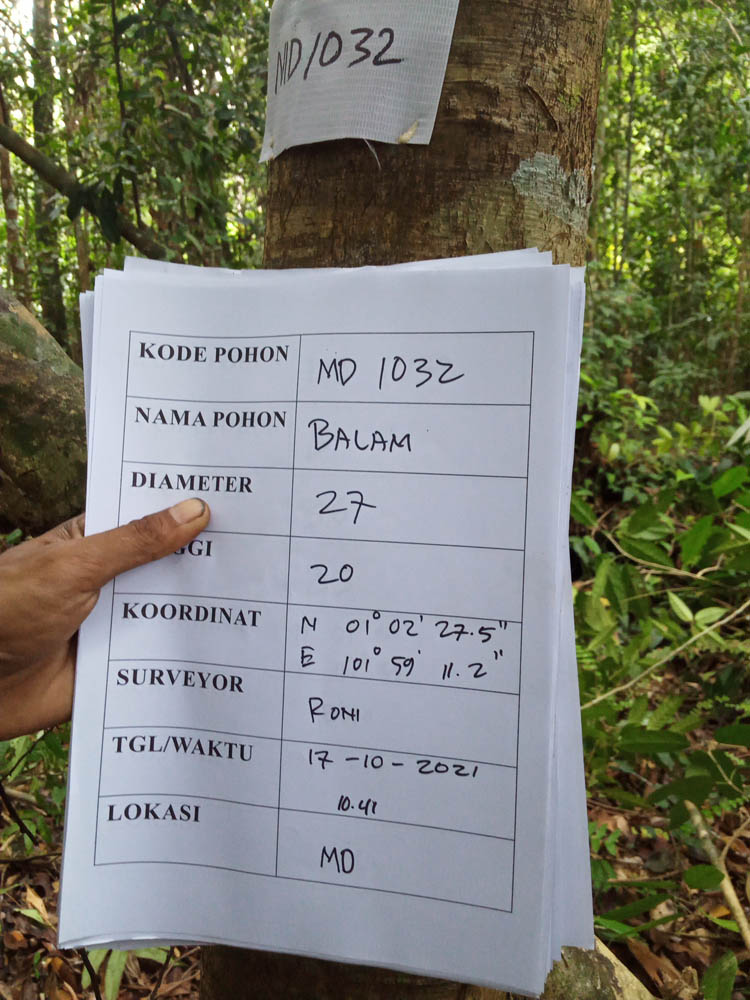 MD1032
KODE POHON MD 1032
NAMA POHON BALAM
DIAMETER 27
GGI 20
KOORDINAT N 01° 02' 27.5"
E 101° 59' 11.2"
SURVEYOR RONI
TGL/WAKTU 17-10-2021
10.41
LOKASI MD